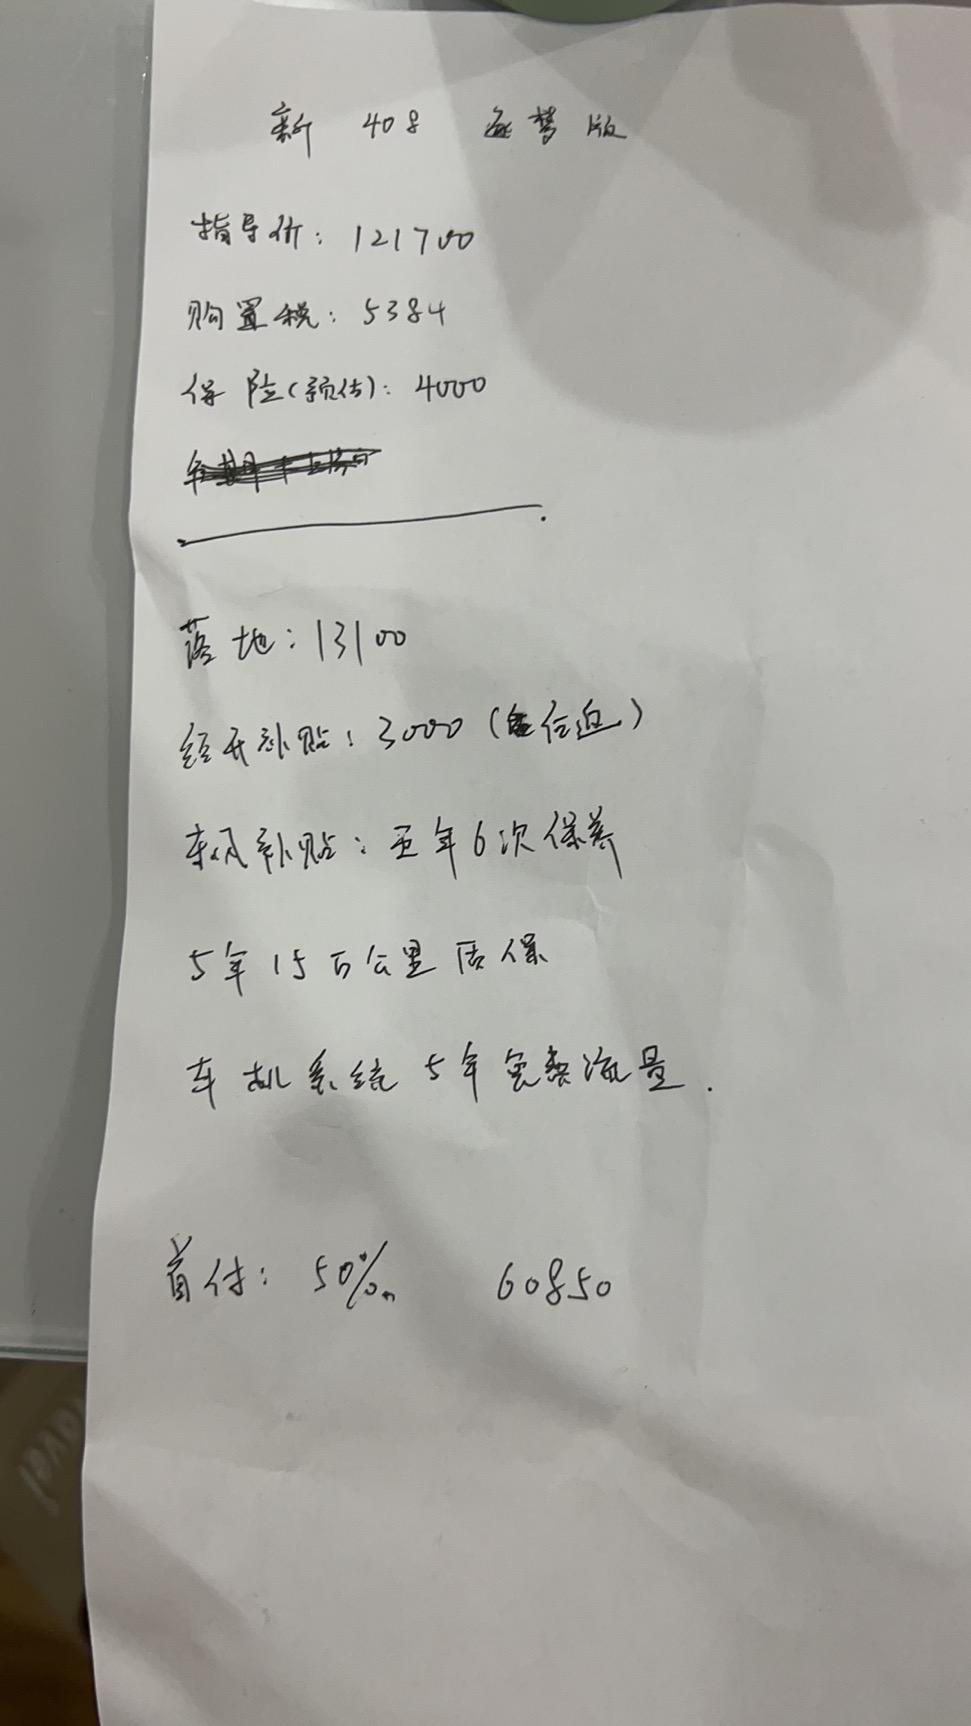 新 408 逐梦版
指导价：121700
购置税：5384
保险(预估)：4000
落地：13100
经开补贴：3000 (任迫)
东风补贴：五年6次保养
5年15万公里质保
车机系统5年免费流量.
首付：50% 60850